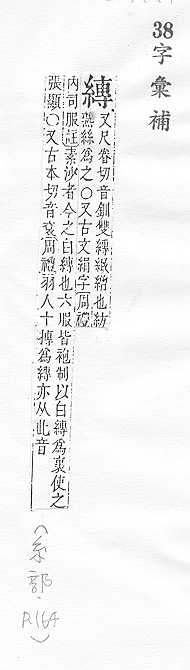 38字彙補
縛又尺劵切音釧雙縳紙綃也紡
䌽絲為之〇又古文絹字周禮
內司服註素沙者今之白縳也六服皆袍制以白縳為裏使之
張顯〇又古本切音袞周禮羽人十摶為縳亦从此音
(糸部.P.164)